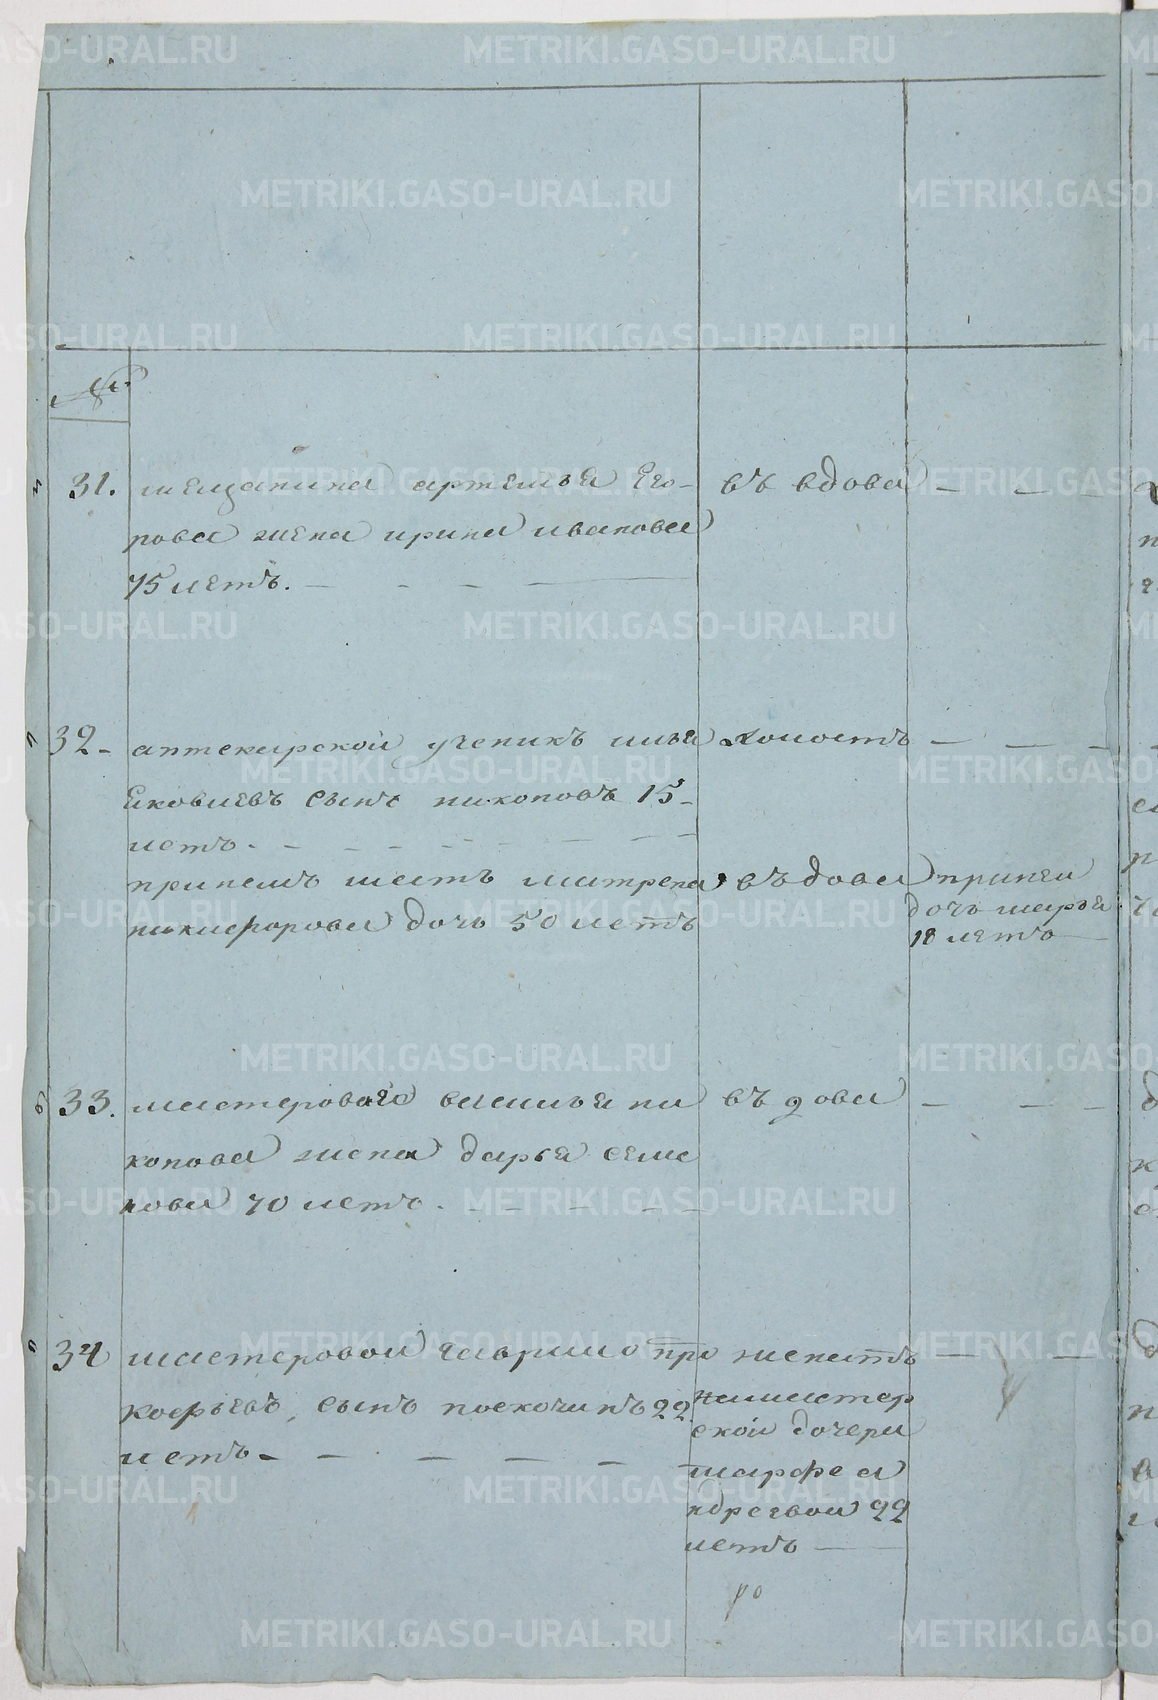 №
31. мещанина артемья Его-
рова жена ирина иванова
75 летъ.
въ вдова
32- аптекарской ученикъ илья
яковлевъ сынъ никоновъ 15-
летъ.
холостъ
при немъ матрена
никифорова дочь 50 летъ
въ дова
при ней
дочь марья
18 летъ
33. мастероваго василья ни
конова жена дарья семе
нова 70 летъ.
въ дова
34 мастеровой гаврило про
кофьевъ сынъ поскочинъ 22
летъ
женатъ
дочери
марфе а
ндреевой 22
летъ
METRIKI.GASO-URAL.RU